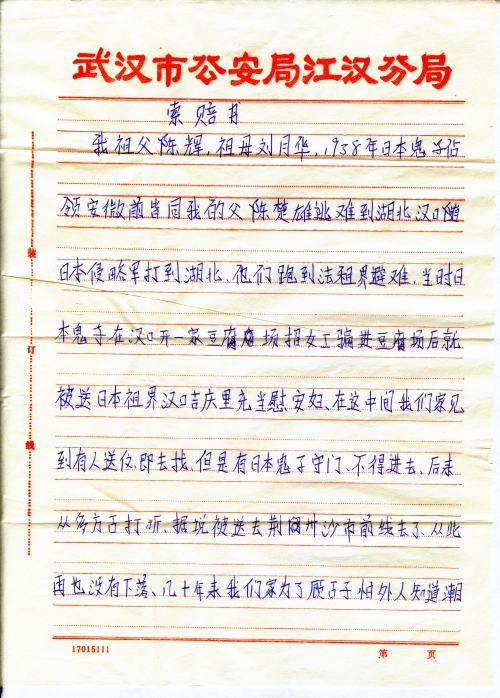 武汉市公安局江汉分局
索赔书
我祖父陈辉，祖母刘月华，1938年日本鬼子占
领安微前皆同我的父陈楚雄逃难到湖北汉口随
日本侵略军打到湖北、他们跑到法租界避难，当时日
本鬼子在汉口开一家豆腐场招女工骗进豆腐场后就
被送日本祖界汉口吉庆里充当慰安妇、在这中间我们家见
到有人送信，即去找、但是有日本鬼子守门、不得进去、后来
从多方古打听、据说被送去荆州沙市前线去了、从此
再也没有下落、几十年来我们家为了顾子怕外人知道潮
装
订
线
17015111
第 页